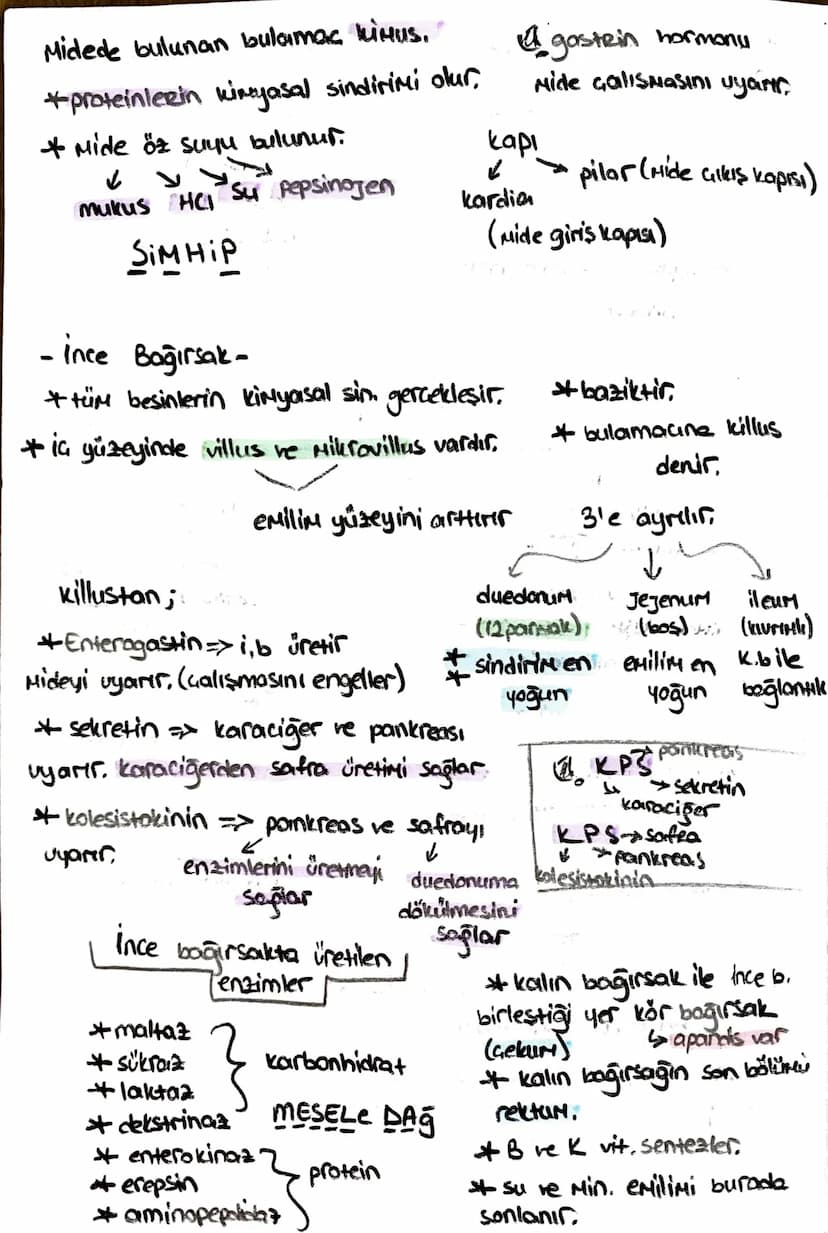 Midede bulunan bulamaç kimus.
*proteinlerin kimyasal sindirimi olur.
* Mide öz suyu bulunur.
mukus HCl su pepsinojen
SİMHİP
gastrin hormonu
Mide çalışmasını uyarır.
kapı
pilor (Mide çıkış kapısı)
kardia
(Mide giriş kapısı)
- İnce Bağırsak -
*tüm besinlerin kimyasal sin. gerçekleşir.
* iç yüzeyinde villus ve mikrovillus vardır.
emilim yüzeyini arttırır
*baziktir.
* bulamacına killus
denir.
3'e ayrılır.
duedonum
(12 parmak)
** sindirim en
yoğun
jejenum
(boş)
emilim en
yoğun
ileum
(kıvrımlı)
K.b ile
bağlantılı
Killustan;
*Enterogastin => i,b üretir
Mideyi uyarır. (çalışmasını engeller)
* sekretin => karaciğer ve pankreası
uyarır. karaciğerden safra üretimi sağlar.
* kolesistokinin => pankreas ve safrayı
uyarır.
enzimlerini üretmeyi
sağlar
duedonuma
dökülmesini
sağlar
KPS → pankreas
→ sekretin
karaciğer
KPS → safra
→ pankreas
kolesistokinin
İnce bağırsakta üretilen
enzimler
*maltaz
*sükraz
*laktaz
* dekstrinaz
karbonhidrat
MESELE DAĞ
* enterokinaz
* erepsin
* aminopeptidaz
protein
* kalın bağırsak ile ince b.
birleştiği yer kör bağırsak
(çekum) ↳ apandis var
* kalın bağırsağın son bölümü
rektum.
* B ve K vit. sentezler.
* su ve min. emilimi burada
sonlanır.